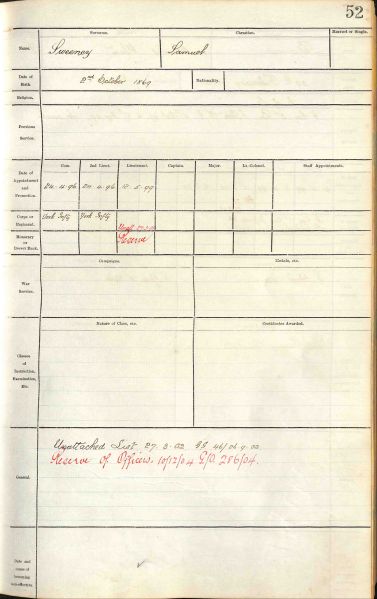 52
Surname.
Christian.
Married or Single.
Name.
Sweeney
Samuel
Date of Birth.
2nd October 1869
Nationality.
Religion.
Previous Service.
Com.
2nd Lieut.
Lieutenant.
Captain.
Major.
Lt-Colonel.
Staff Appointments.
Date of Appointment and Promotion.
24.4.96
24.4.96
10.5.99
Corps or Regiment.
York Inf
York Inf
Honorary or Brevet Rank.
Reserve
Campaigns.
Medals, etc.
War Service.
Nature of Class, etc.
Certificates Awarded.
Classes of Instruction, Examination, Etc.
General.
Unattached List 27.3.02
Reserve of Officers. 10/12/04 G/O. 286/04.
Date and cause of becoming non-effective.